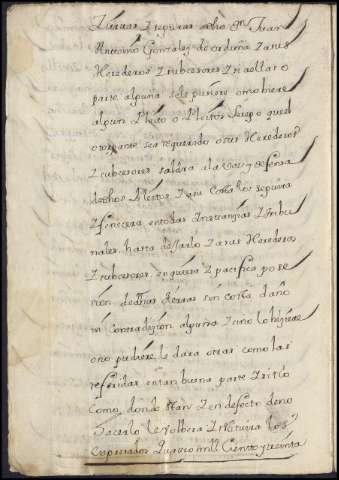 tierras Y seguras adho gn Juan
Antonio Gonzalez de orduña Y a sus
Herederos Y subcesores Y si a ella o
parte alguna se le pusiere o moviere
algun Pleito o Pleitos luego que el
otorgante sea requerido o sus Herederos
Y subcesores saldra a la voz y defensa
dedhos Pleitos Y a su Costa los seguira
Y fenecera en todas Instanzias Y tribu
nales hasta dejarlo Y a sus Herederos
Y subcesores en quieta Y pacifica pose
sion dedhas tierras sin Costa daño
ni contradizion alguna Y si no lo hiziere
o no pudiere, le dara otras como las
referidas en tan buena parte Y sitio
Como donde estan Y en defecto de no
hacerlo le volbera Y restituira los
expresados quatro mill Ciento y treinta